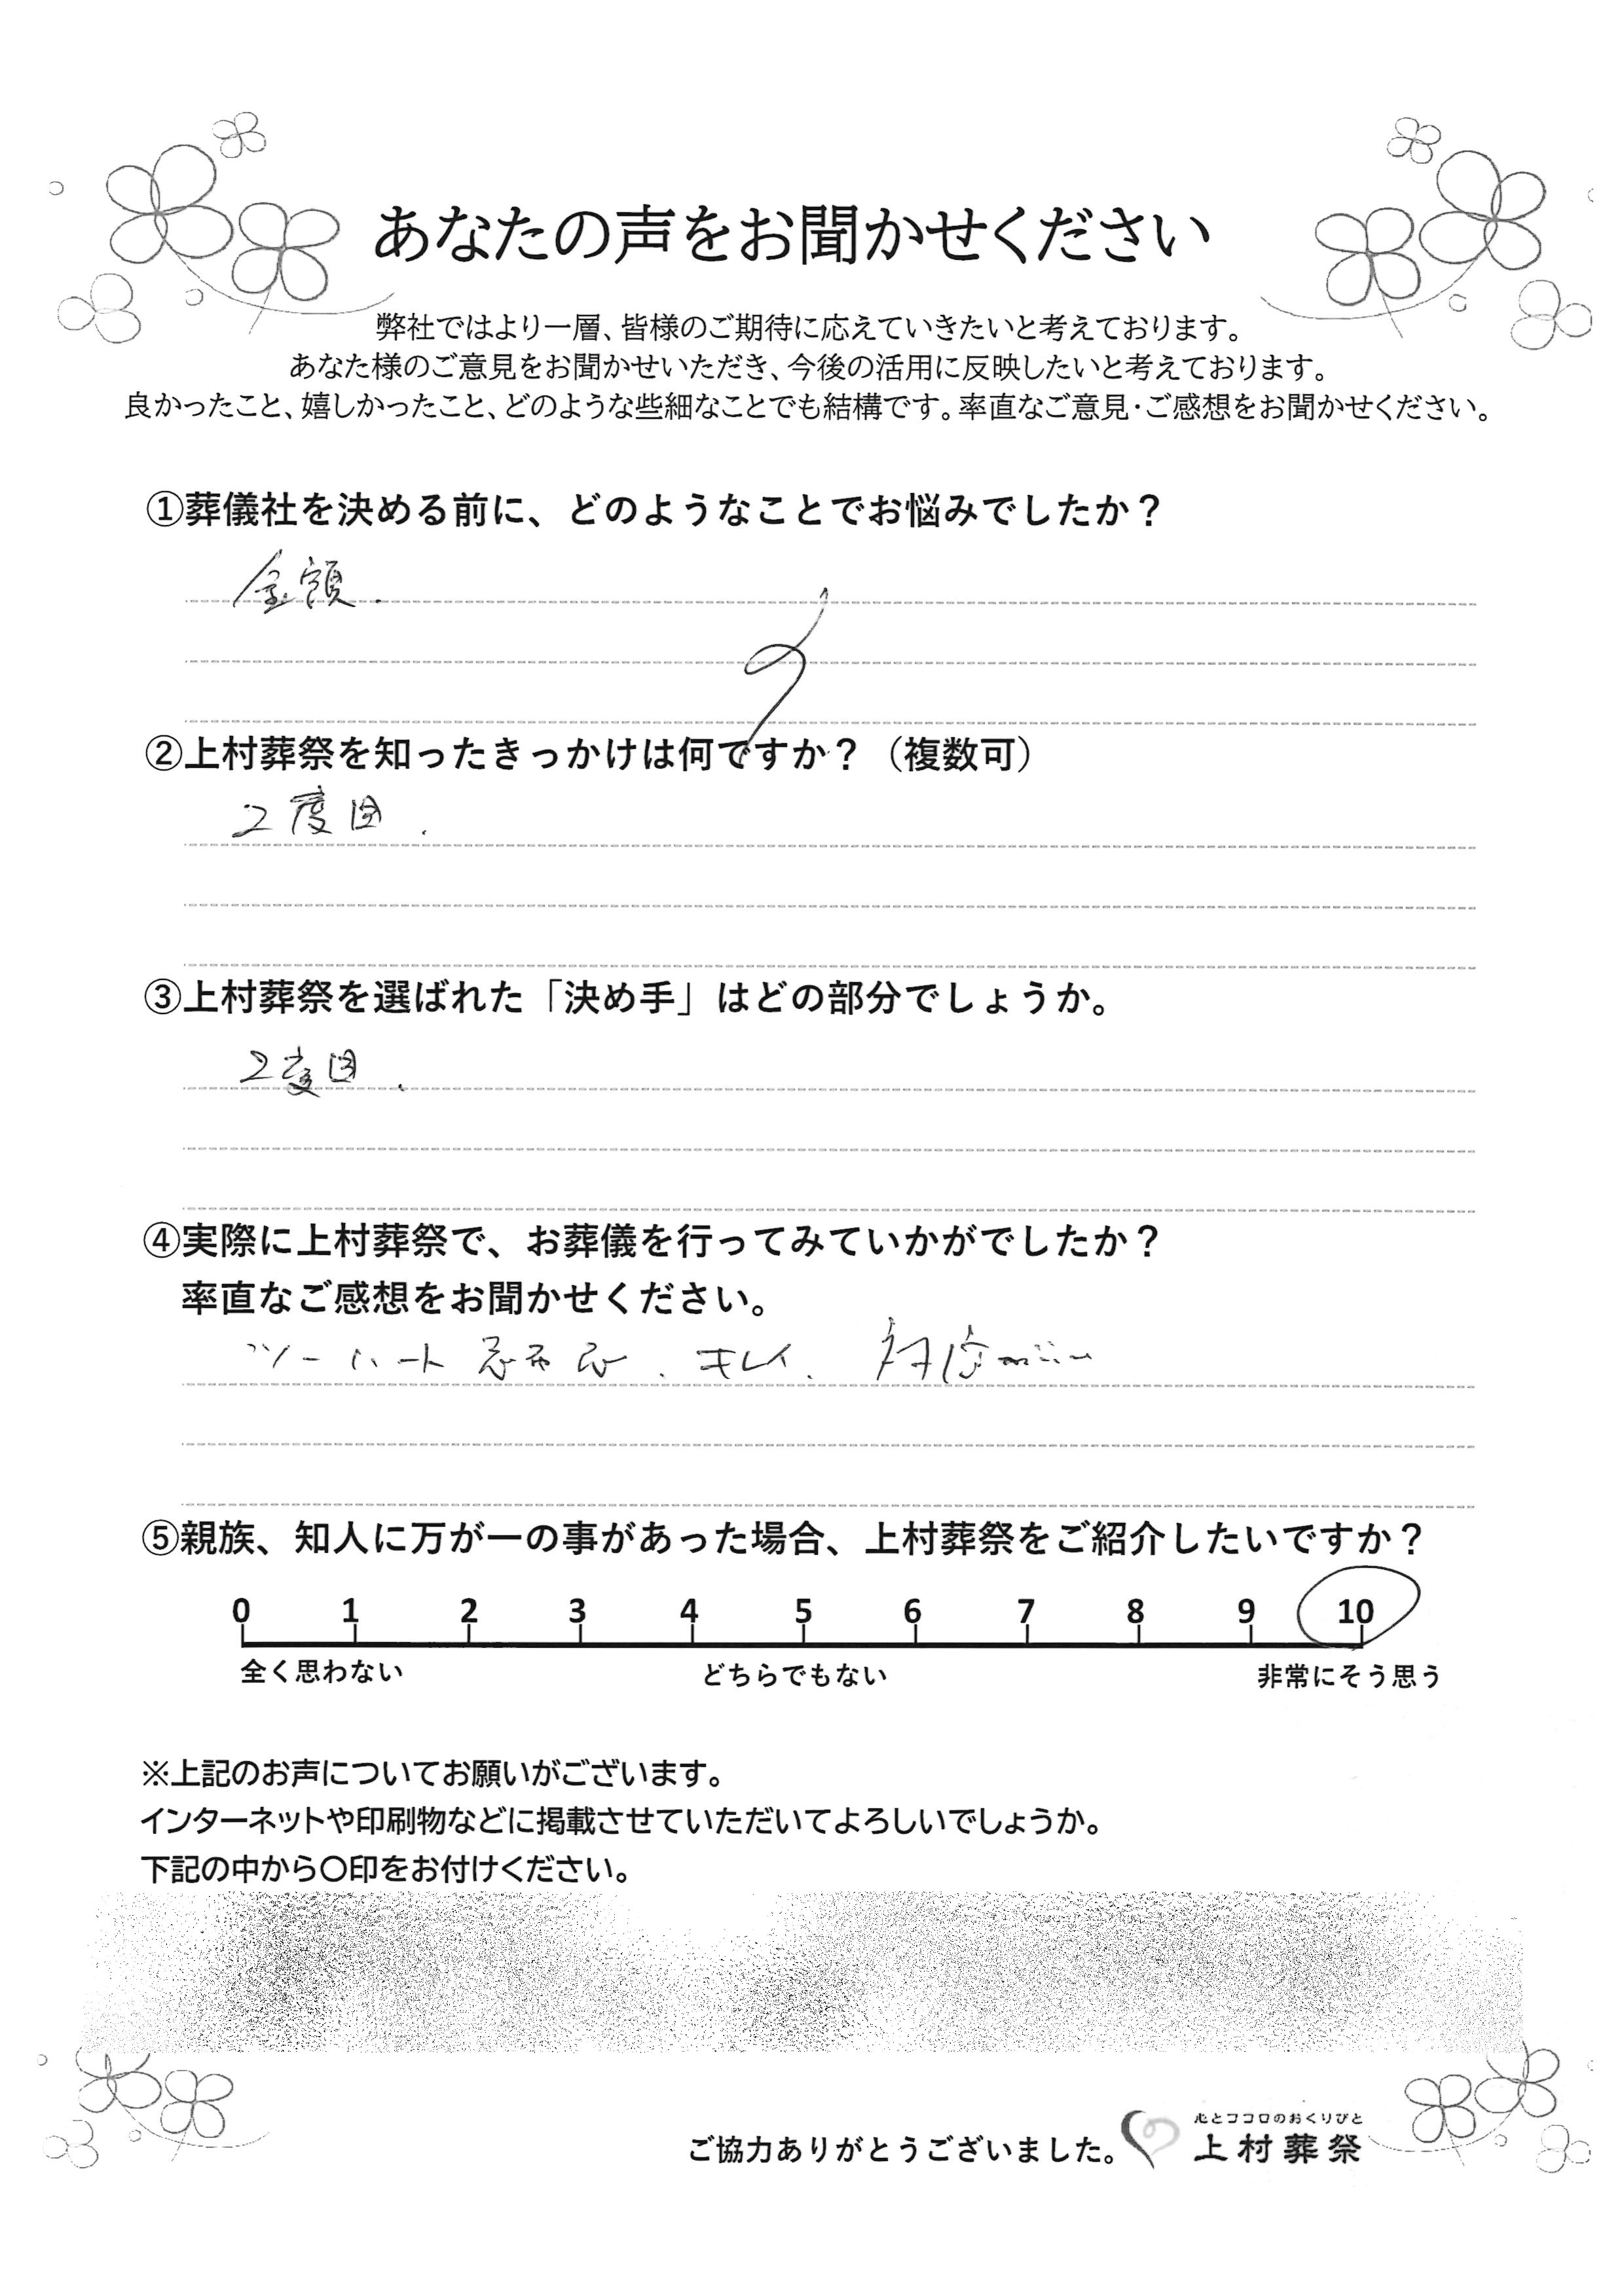 あなたの声をお聞かせください
弊社ではより一層、皆様のご期待に応えていきたいと考えております。
あなた様のご意見をお聞かせいただき、今後の活用に反映したいと考えております。
良かったこと、嬉しかったこと、どのような些細なことでも結構です。率直なご意見・ご感想をお聞かせください。
①葬儀社を決める前に、どのようなことでお悩みでしたか？
金額.
②上村葬祭を知ったきっかけは何ですか？（複数可）
2度目.
③上村葬祭を選ばれた「決め手」はどの部分でしょうか。
2度目.
④実際に上村葬祭で、お葬儀を行ってみていかがでしたか？
率直なご感想をお聞かせください。
ツーハート . キレイ. 対応がいい
⑤親族、知人に万が一の事があった場合、上村葬祭をご紹介したいですか？
0 1 2 3 4 5 6 7 8 9 10
全く思わない どちらでもない 非常にそう思う
※上記のお声についてお願いがございます。
インターネットや印刷物などに掲載させていただいてよろしいでしょうか。
下記の中から〇印をお付けください。
心とココロのおくりびと
ご協力ありがとうございました。 上村葬祭